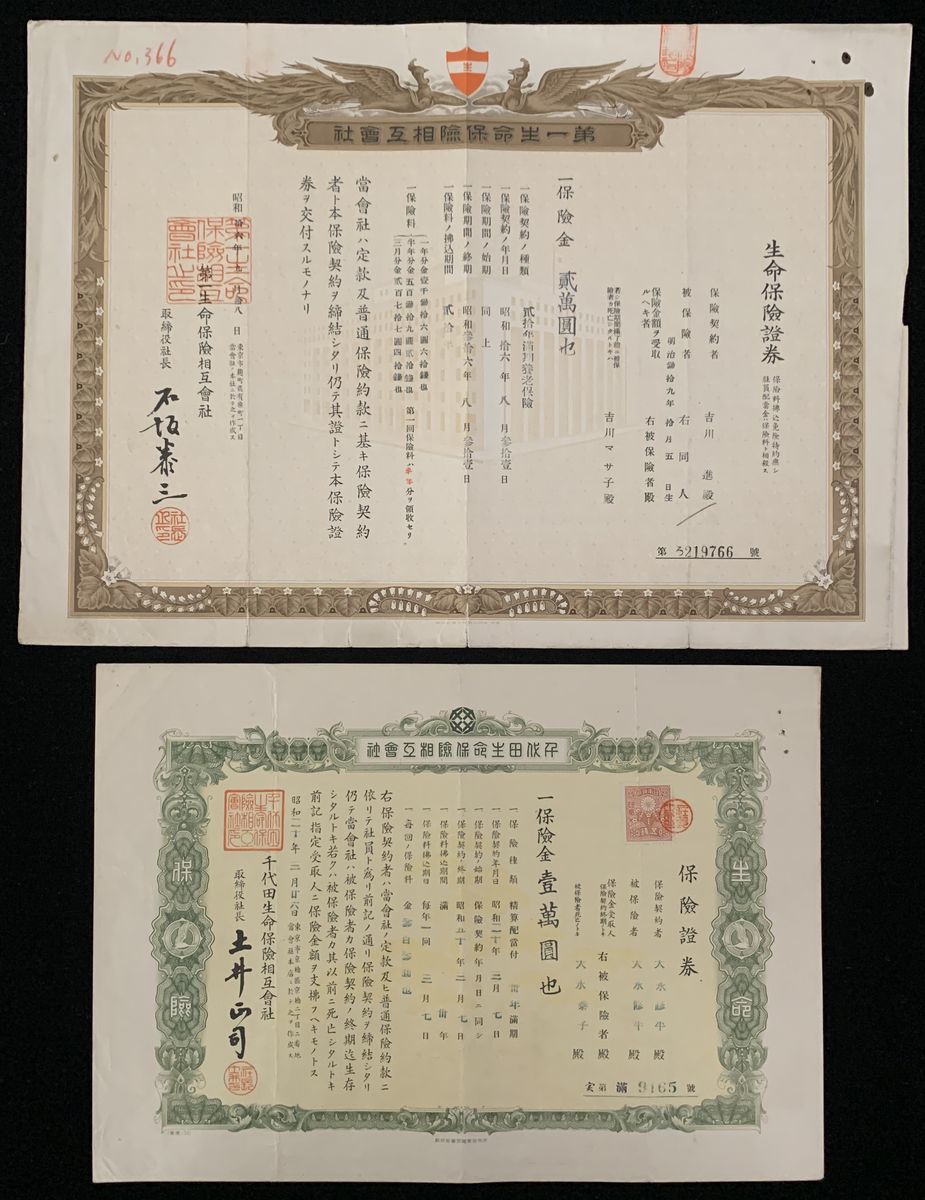 No.366
生
第一生命保險相互會社
生命保險證券
保險料拂込免除特約無シ
社員配當金ハ保險料ト相殺ス
保險契約者 吉川 進殿
被保險者 右同人
明治參拾九年拾月五日生
保險金額ヲ受取ルヘキ者 右被保險者殿
若シ保險期間滿了前ニ被保險者カ死亡シタルトキハ 吉川マサ子殿
第3219766號
一保險金 貳萬圓也
一保險契約ノ種類 貳拾年滿期養老保險
一保險契約ノ年月日 昭和拾六年八月參拾壹日
一保險期間ノ始期 同上
一保險期間ノ終期 昭和參拾六年八月參拾壹日
一保險料ノ拂込期間 貳拾年
一保險料
一年分金壹千參拾六圓六拾錢也
半年分金五百參拾九圓貳拾錢也
三月分金貳百七拾七圓四拾錢也
第一回保險料ハ半年分ヲ領收セリ
當會社ハ定款及普通保險約款ニ基キ保險契約
者ト本保險契約ヲ締結シタリ仍テ其證トシテ本保險證
券ヲ交付スルモノナリ
昭和拾六年九月八日
東京市麴町區有樂町一丁目
當會社ノ本社ニ於テ之ヲ作成ス
第一生命保險相互會社
取締役社長 石坂泰三
第一生命保險相互會社之印
社長之印
千代田生命保險相互會社
生命
保險
保險證券
保險契約者 大水修平殿
被保險者 大水修平殿
保險金受取人
保險契約終期ノトキ 右被保險者殿
被保險者死亡ノトキ 大水榮子殿
第滿9165號
一保險金壹萬圓也
一保險種類 精算配當付 卅年滿期
一保險契約年月日 昭和二十年二月七日
一保險契約ノ始期 保險契約年月日ニ同シ
一保險契約ノ終期 昭和五十年二月七日
一保險料拂込期間 滿卅年
一保險料拂込期日 每年一回二月七日
一每回ノ保險料
右保險契約者ハ當會社ノ定款及ヒ普通保險約款ニ
依リテ社員ト爲リ前記ノ通リ保險契約ヲ締結シタリ
仍テ當會社ハ被保險者カ保險契約ノ終期迄生存
シタルトキ若クハ被保險者カ其以前ニ死亡シタルトキ
前記指定受取人ニ保險金額ヲ支拂フヘキモノトス
昭和二十年二月廿六日
東京市京橋區京橋二丁目二番地
當會社本店ニ於テ之ヲ作成ス
千代田生命保險相互會社
取締役社長 土井正司